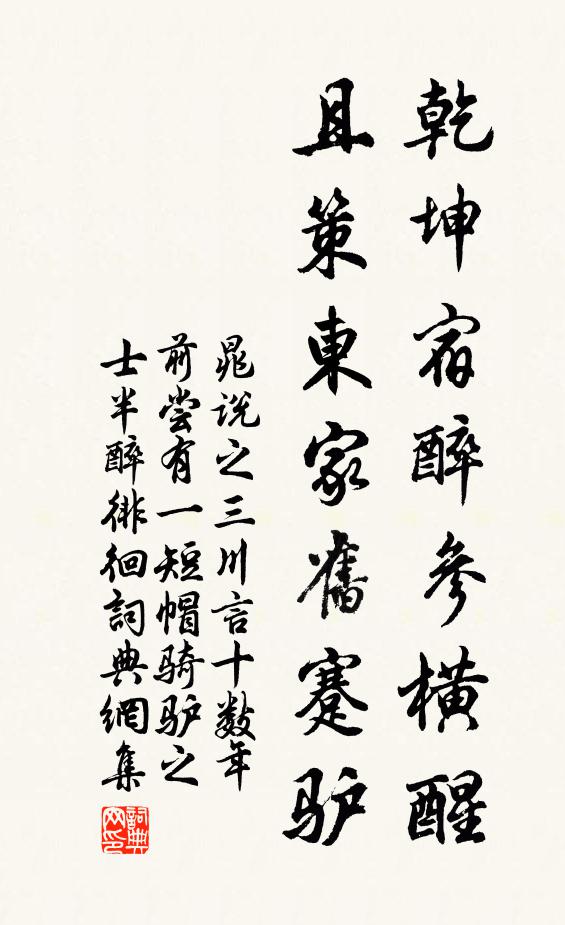 乾坤宿醉參橫醒
且策東家舊蹇驴
晁説之三川言十数年
前尝有一短帽骑驴之
士半醉徘徊詞典網集
詞典網印